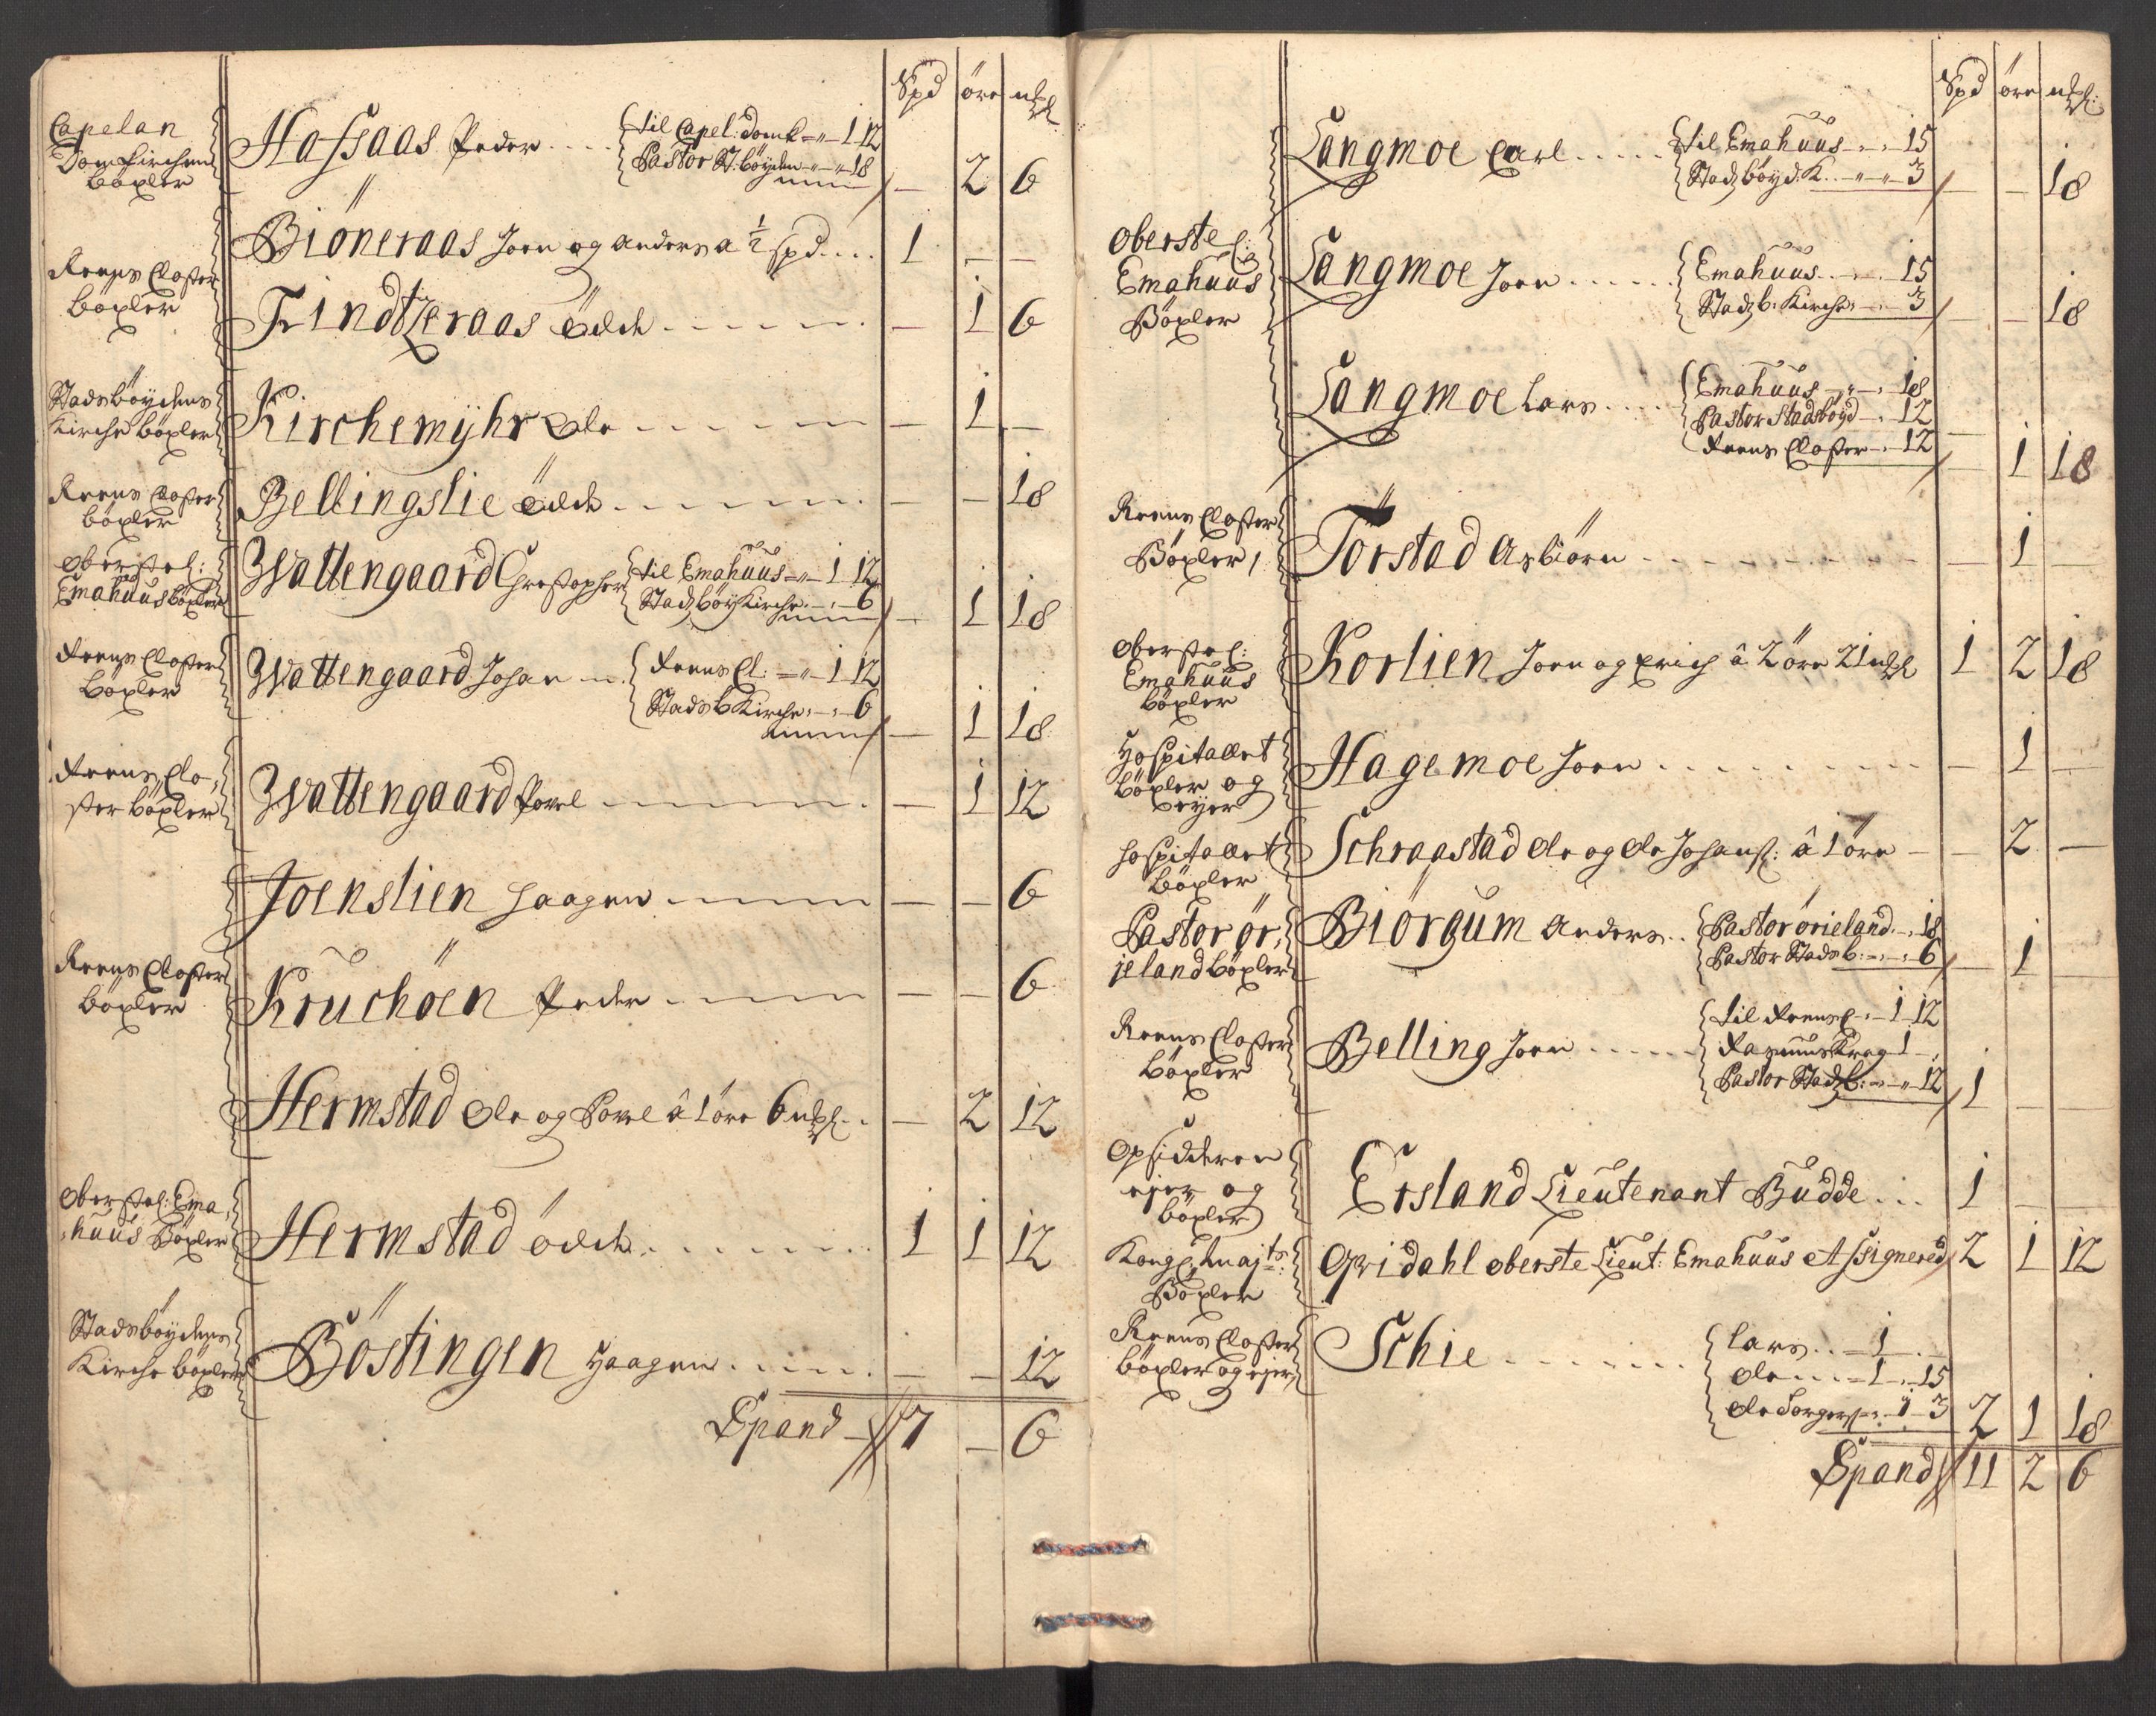 Spd öre mkl
Capelan
Domkirchens
böxler
Hafsaas Peder . . . .
til Capel: domk = „ – 1 12
Pastor St: böyden – „ – „ 18
— 2 6
Biöneraas Joen og Anders a ½ spd . . . . 1 — —
Reens Closter
böxler
Findtzeraas Odch . . . . — 1 6
Stadsböydens
Kirche böxler
Kirchemyhr Ole — 1 —
Reens Closter
böxler
Bellingslie Odch — — 18
Oberstel:
Emahuus böxler
Wattengaard Chrestopher
til Emahuus = „ – 1 12
Stadzböy Kirche. – „ – 6
— 1 18
Reens Closter
böxler
Wattengaard Johan
Reens Cl: = „ – 1 12
Stadsb Kirche. – „ – 6
— 1 18
Reens Clo,
ster böxler
Wattengaard Povel — 1 12
Joenslien Haagen — — 6
Reens Closter
böxler
Kruchöen Peder — — 6
Hermstad Ole og Povel â 1 öre 6 mkl . . — 2 12
Oberstel: Ema,
huus Böxler
Hermstad Odch . . . . 1 1 12
Stadsböydens
Kirche böxler
Böstingen Haagen . . . . — — 12
Spand 7 — 6
Spd öre mkl:
Langmoe Carl . . . . .
til Emahuus – „ – 15
Stadzböyd: K. . – „ – „ – 3
— — 18
Oberstel:
Emahuus
Böxler
Langmoe Joen . . . . . .
Emahuus . – „ – . 15
Stadzb: Kirche – „ – 3
— — 18
Langmoe Lars . . . .
Emahuus – „ – „ 18
Pastor Stadsböyd – „ 12
Reens Closter – „ 12
— 1 18
Reens Closter
Böxler
Törstad Asbiörn — 1 —
Oberstel:
Emahuus
böxler
Korlien Joen og Erich â 2 öre 21 mkl 1 2 18
Hospitallet
böxler og
eyer
Hagemoe Joen . . . . — 1 —
Hospitallet
böxler
Schraastad Ole og Ole Johans: â 1 öre — 2 —
Pastor ör,
jeland Böxler
Biörgum Anders . .
Pastor örieland. – „ 18
Pastor Stadsb: – „ – „ 6
— 1 —
Reens Closter
böxler
Belling Joen . . . . .
til Reens C – „ – 1 12
Rasmus Krag 1 – „
Pastor Stadzb: – „ – „ 12
1 — —
Opsidderen
ejer og
böxler
Ersland Lieutenant Budde . . . 1 — —
Kongl: Majts:
Böxler
Opridahl Oberste Lieut: Emahuus Assignered 2 1 12
Reens Closter
böxler og ejer
Schie . . . . . . .
Lars . . – 1 . –
Ole . . . – 1 „ 15
Ole Torgers: . . 1 – 3
2 1 18
Spand 11 2 6